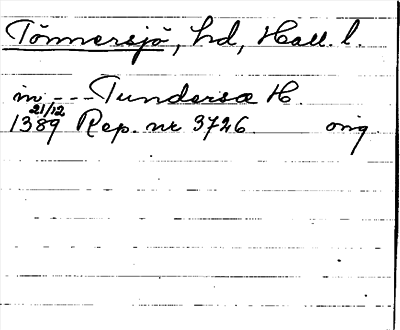 Tönnersjö, hd, Hall. l.
in --- Tundersæ H.
21/12
1389 Rep. nr 3726 orig.